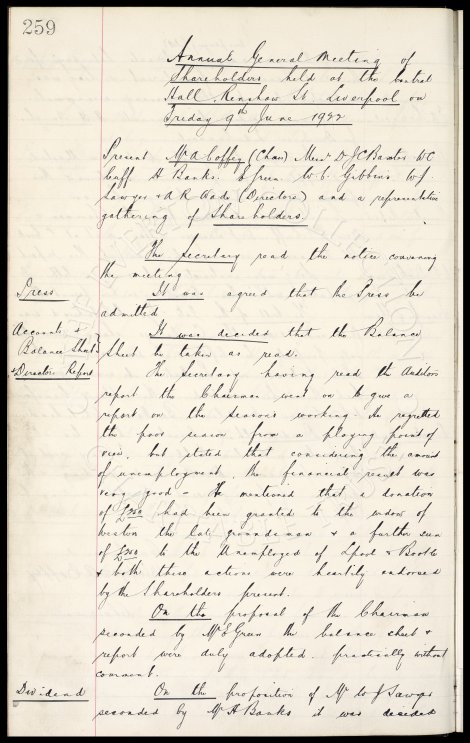 259
Annual General Meeting of
Shareholders held at the Central
Hall Renshaw St. Liverpool on
Friday 9th June 1922
Present Mr A Coffey (Chair) Messrs Dr J C Baxter WC
Cuff A Banks. E Green. W. C. Gibbins W J
Sawyer & A R Wade (Directors) and a representative
gathering of Shareholders.
The Secretary read the notice convening
the meeting
Press
It was agreed that the Press be
admitted
Accounts &
Balance Sheet
& Directors Report
It was decided that the Balance
Sheet be taken as read.
The Secretary having read the Auditors
report the Chairman went on to give a
report on the seasons working. He regretted
the poor season from a playing point of
view, but stated that considering the amount
of unemployment, the financial result was
very good - He mentioned that a donation
of had been granted to the widow of
the late groundsman & a further sum
of to the Unemployed of Lpool & Bootle
& both these actions were heartily endorsed
by the Shareholders present.
On the proposal of the Chairman
seconded by Mr E Green the balance sheet &
report were duly adopted practically without
comment.
Dividend
On the proposition of Mr W J Sawyer
seconded by Mr A Banks it was decided